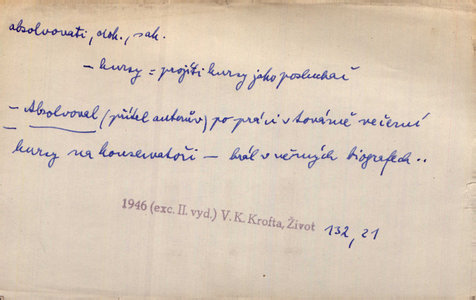 absolvovati, dok., sak.
– kursy = projíti kursy jako posluchač
– Absolvoval (přítel autorův) po práci v továrně večerní
kursy na konservatoři – hrál v němých biografech..
1946 (exc. II. vyd.) V. K. Krofta, Život 132, 21